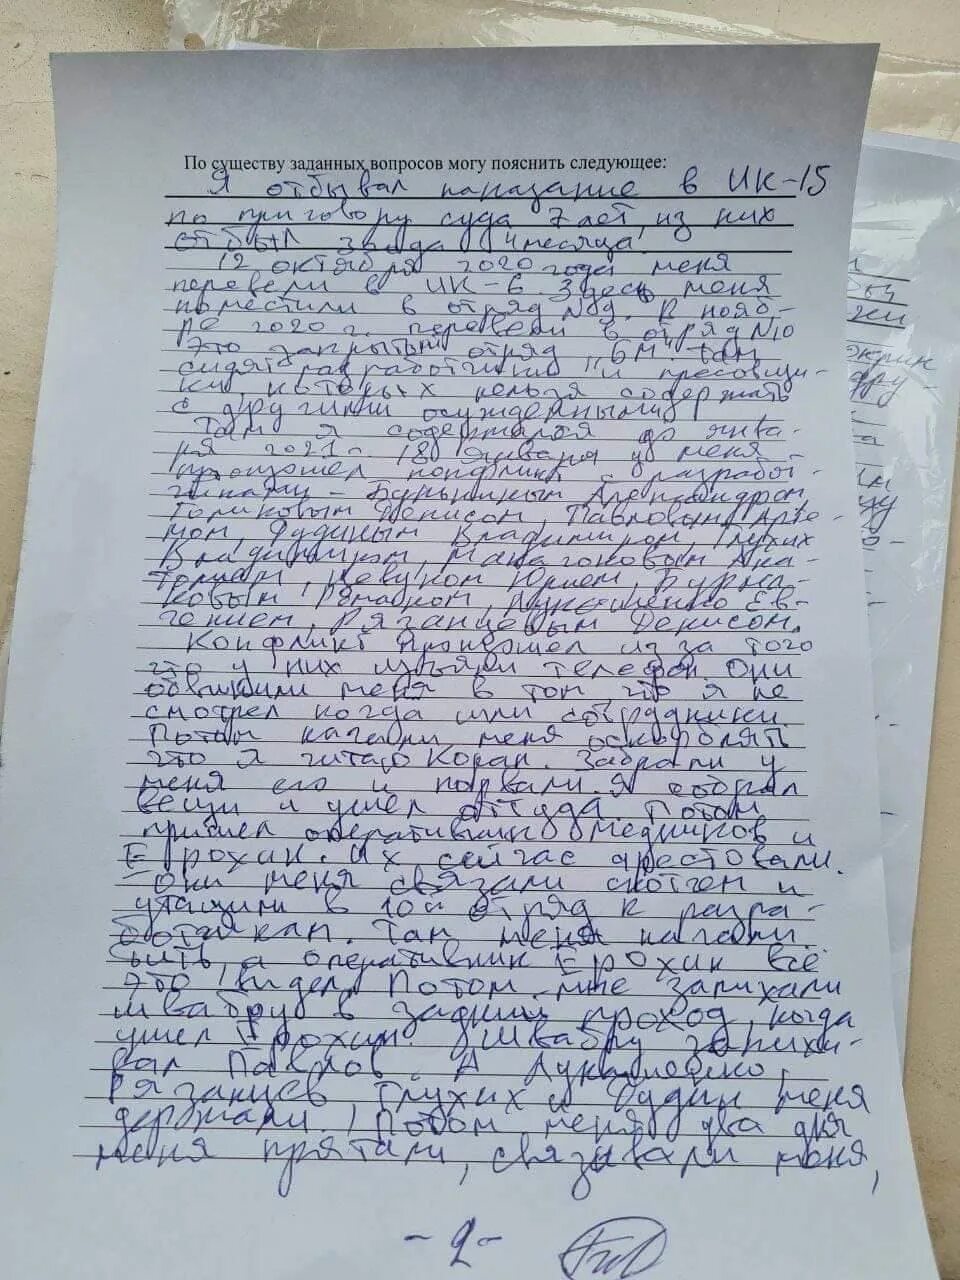 По существу заданных вопросов могу пояснить следующее:
Я отбывал наказание в ИК-15
по приговору суда 7 лет, из них
отбыл года 4 месяца
12 октября 2020 года меня
перевели в ИК-6. Здесь меня
поместили в отряд №9. В нояб-
ре 2020 г. перевели в отряд №10
Это закрытый отряд "БМ", там
сидят разработчики и пресовщи-
ки, которых нельзя содержать
с другими осужденными.
Там я содержался до янва-
ря 2021 г. 18 января у меня
произошел конфликт с разработ-
чиками - Александром,
Голиковым Денисом, Павловым Арте-
мом, Дудиным Владимиром, Глухих
Владимиром, Ана-
толием, Юрием, Бурна-
ковым Романом, Лукашенко Ев-
гением, Рязанцевым Денисом.
Конфликт произошел из за того
что у них изъяли телефон. Они
обвинили меня в том что я не
смотрел когда шли сотрудники.
Потом начали меня оскорблять
что я читаю Коран. Забрали у
меня его и порвали. Я собрал
вещи и ушел оттуда. Потом
пришел оперативник Медников и
Ерохин. Их сейчас арестовали.
Они меня связали скотчем и
утащили в 10й отряд к разра-
боткам. Там меня начали
бить, а оперативник Ерохин всё
это видел. Потом мне запихали
швабру в задний проход, когда
ушел Ерохин. Швабру запихи-
вал Павлов. А Лукашенко,
Рязанцев, Глухих и Дудин меня
держали. Потом меня два дня
меня прятали, связывали меня,
-2-